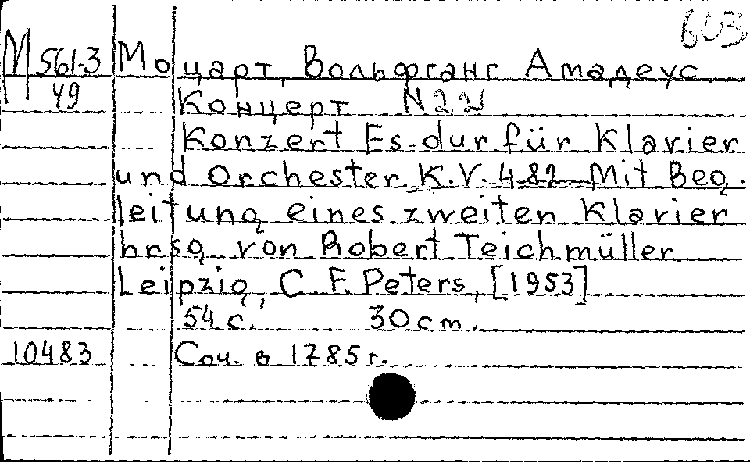 603
М 561-3 Моцарт, Вольфганг Амадеус
49 Концерт N22
Konzert Es-dur für Klavier
und Orchester K.V. 482 Mit Beg-
leitung eines zweiten Klavier
hrsg. von Robert Teichmüller
Leipzig, C. F. Peters, [1953]
54 с. 30 cm.
10483 Соч. в 1785 г.